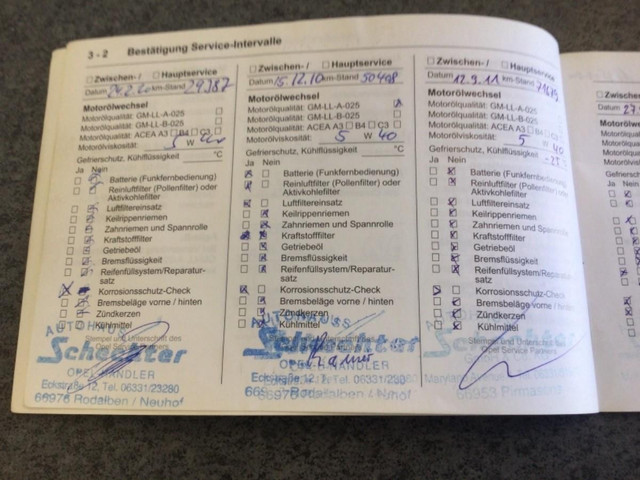 3 - 2 Bestätigung Service-Intervalle
☐ Zwischen- / ☐ Hauptservice
Datum km-Stand 29387
Motorölwechsel
Motorölqualität: GM-LL-A-025 ☐
Motorölqualität: GM-LL-B-025 ☐
Motorölqualität: ACEA A3 ☐ B4 ☐ C3 ☐
Motorölviskosität: 5 W
Gefrierschutz, Kühlflüssigkeit °C
Ja Nein
Batterie (Funkfernbedienung)
Reinluftfilter (Pollenfilter) oder
Aktivkohlefilter
Luftfiltereinsatz
Keilrippenriemen
Zahnriemen und Spannrolle
Kraftstofffilter
Getriebeöl
Bremsflüssigkeit
Reifenfüllsystem/Reparatur-
satz
Korrosionsschutz-Check
Bremsbeläge vorne / hinten
Zündkerzen
Kühlmittel
Stempel und Unterschrift des
Opel Service Partners
AUTOHAUS
Schachter
OPEL-HÄNDLER
Eckstraße 12, Tel. 06331/23280
66976 Rodalben / Neuhof
☐ Zwischen- / ☐ Hauptservice
Datum 15.12.10 km-Stand 50498
Motorölwechsel
Motorölqualität: GM-LL-A-025
Motorölqualität: GM-LL-B-025 ☐
Motorölqualität: ACEA A3 ☐ B4 ☐ C3 ☐
Motorölviskosität: 5 W 40
Gefrierschutz, Kühlflüssigkeit °C
Ja Nein
Batterie (Funkfernbedienung)
Reinluftfilter (Pollenfilter) oder
Aktivkohlefilter
Luftfiltereinsatz
Keilrippenriemen
Zahnriemen und Spannrolle
Kraftstofffilter
Getriebeöl
Bremsflüssigkeit
Reifenfüllsystem/Reparatur-
satz
Korrosionsschutz-Check
Bremsbeläge vorne / hinten
Zündkerzen
Kühlmittel
AUTOHAUS
Schachter
OPEL-HÄNDLER
Eckstraße 12, Tel. 06331/23280
66976 Rodalben / Neuhof
☐ Zwischen- / ☐ Hauptservice
Datum 12.9.11 km-Stand
Motorölwechsel
Motorölqualität: GM-LL-A-025
Motorölqualität: GM-LL-B-025
Motorölqualität: ACEA A3 ☐ B4 ☐ C3 ☐
Motorölviskosität: 5 W 40
Gefrierschutz, Kühlflüssigkeit -25 °C
Ja Nein
Batterie (Funkfernbedienung)
Reinluftfilter (Pollenfilter) oder
Aktivkohlefilter
Luftfiltereinsatz
Keilrippenriemen
Zahnriemen und Spannrolle
Kraftstofffilter
Getriebeöl
Bremsflüssigkeit
Reifenfüllsystem/Reparatur-
satz
Korrosionsschutz-Check
Bremsbeläge vorne / hinten
Zündkerzen
Kühlmittel
Stempel und Unterschrift des
Opel Service Partners
66953 Pirmasens